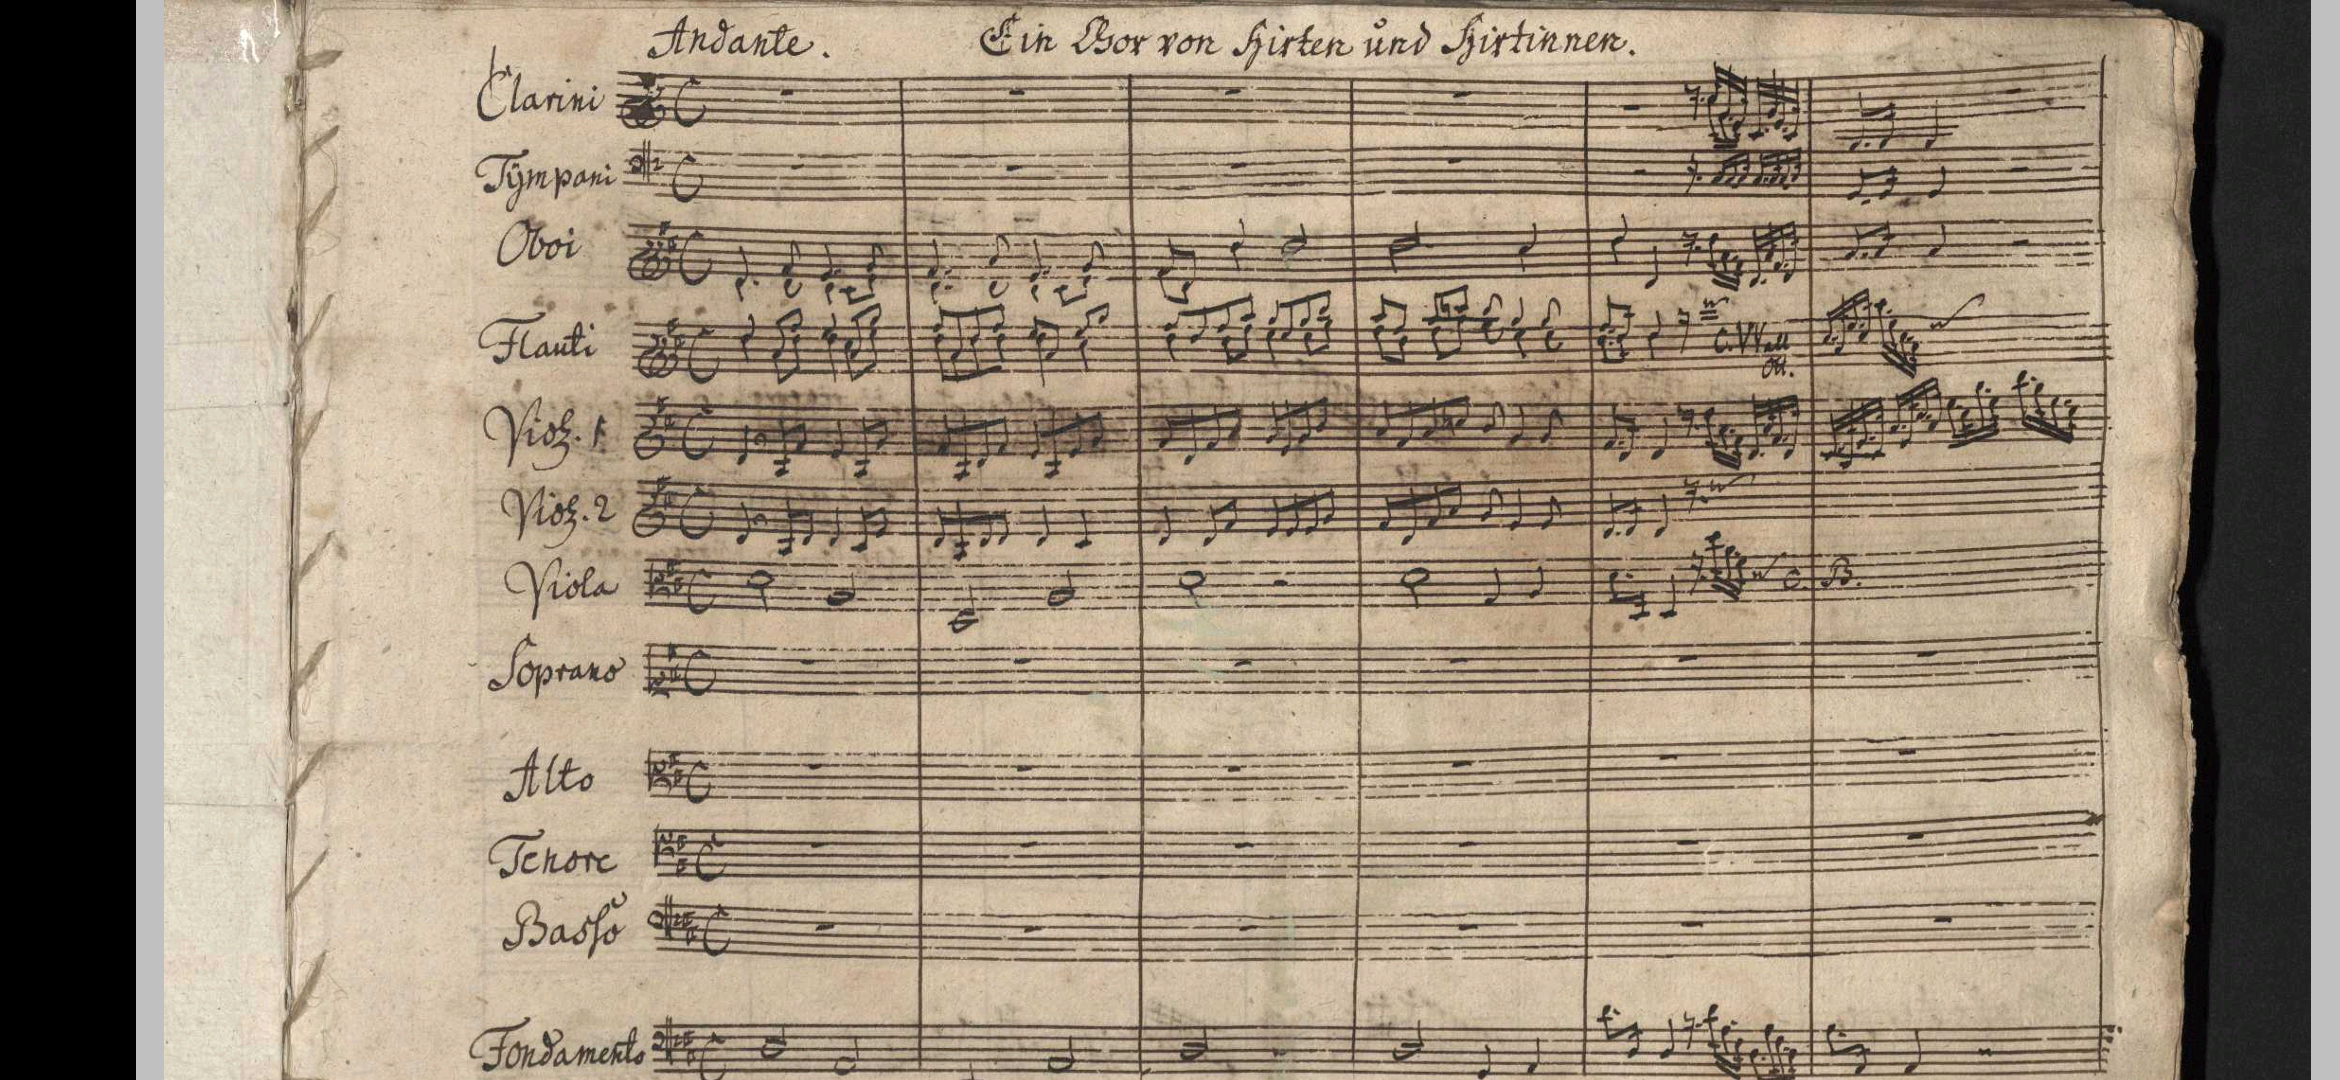 Andante. Ein Chor von Hirten und Hirtinnen.
Clarini
Tÿmpani
Oboi
Flauti
C. VV all
ott.
Viol. 1
Viol. 2
Viola
C. B.
Soprano
Alto
Tenore
Basso
Fondamento